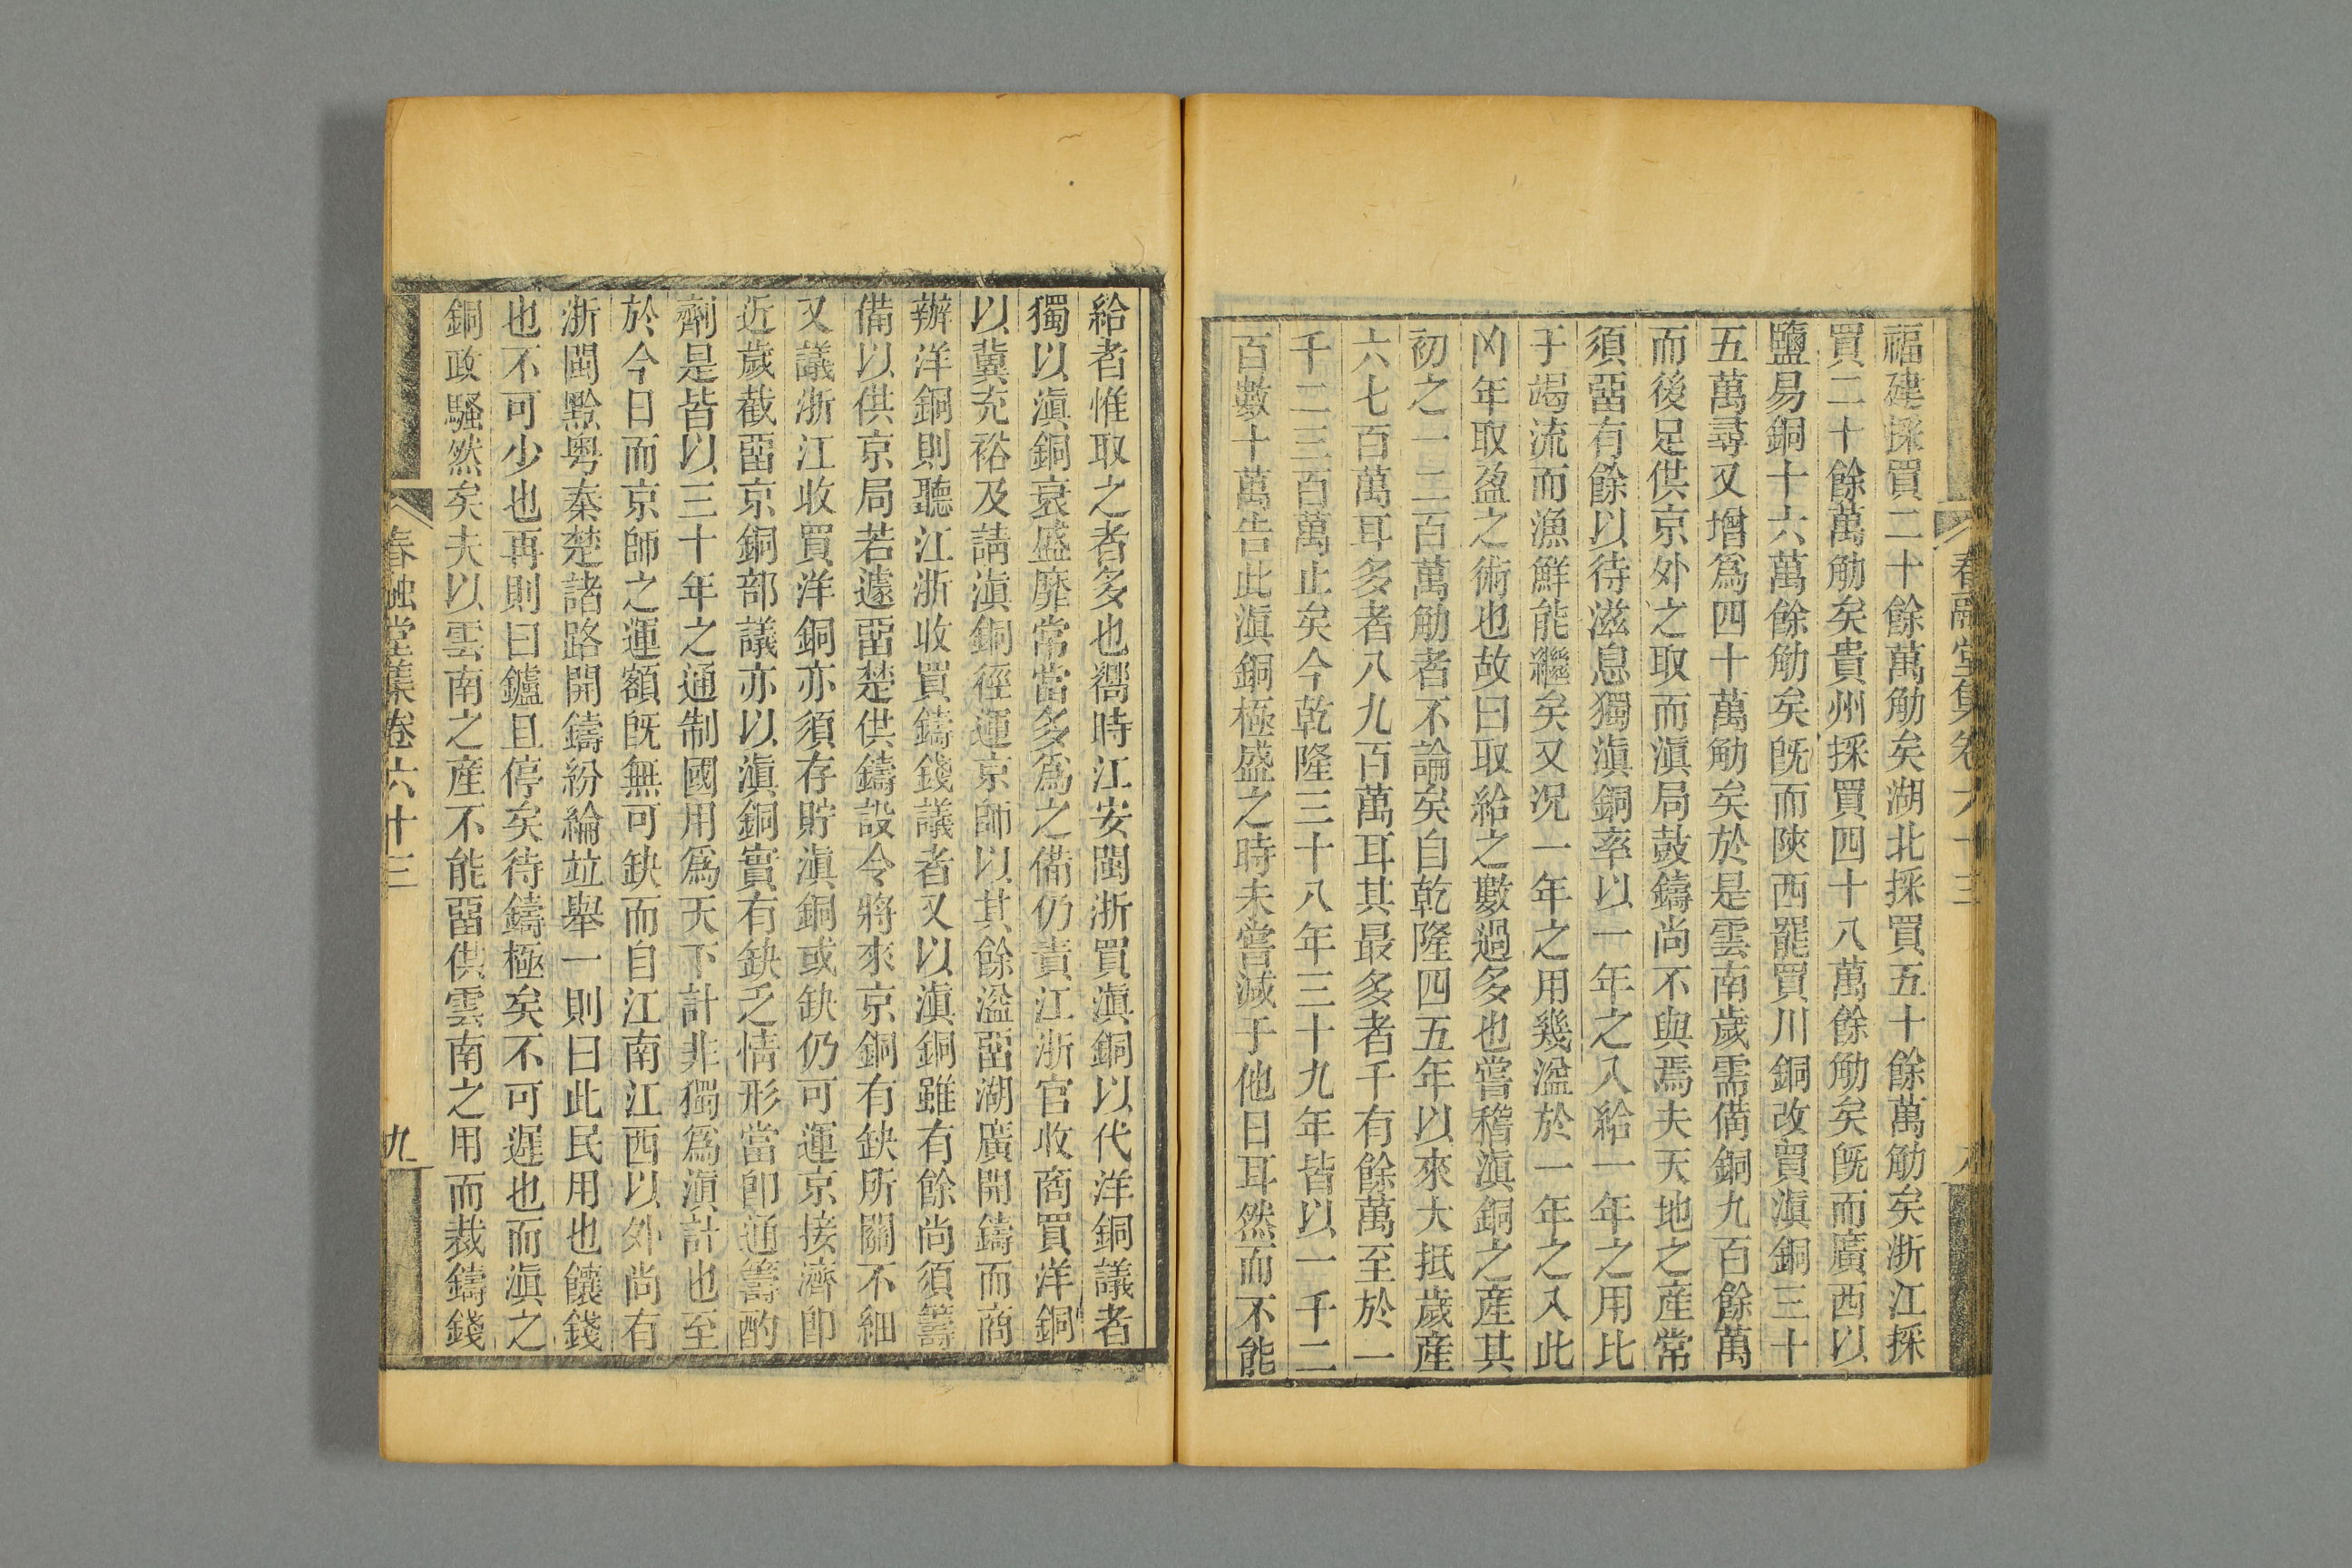 福建採買二十餘萬觔矣湖北採買五十餘萬觔矣浙江採
買二十餘萬觔矣貴州採買四十八萬餘觔矣旣而廣西以
鹽易銅十六萬餘觔矣旣而陝西罷買川銅改買滇銅三十
五萬尋又增爲四十萬觔矣於是雲南歲需備銅九百餘萬
而後足供京外之取而滇局鼓鑄尚不與焉夫天地之産常
須畱有餘以待滋息獨滇銅率以一年之入給一年之用比
于竭流而漁鮮能繼矣又况一年之用幾溢於一年之入此
凶年取盈之術也故曰取給之數過多也嘗稽滇銅之産其
初之一二百萬觔者不論矣自乾隆四五年以來大抵歲産
六七百萬耳多者八九百萬耳其最多者千有餘萬至於一
千二三百萬止矣今乾隆三十八年三十九年皆以一千二
百數十萬告此滇銅極盛之時未嘗減于他日耳然而不能
春融堂集卷六十三
八
給者惟取之者多也嚮時江安閩浙買滇銅以代洋銅議者
獨以滇銅衰盛靡常當多爲之備仍責江浙官收商買洋銅
以冀充裕及請滇銅徑運京師以其餘溢畱湖廣開鑄而商
辦洋銅則聽江浙收買鑄錢議者又以滇銅雖有餘尚須籌
備以供京局若遽畱楚供鑄設令將來京銅有缺所關不細
又議浙江收買洋銅亦須存貯滇銅或缺仍可運京接濟卽
近歲截畱京銅部議亦以滇銅實有缺乏情形當卽通籌酌
劑是皆以三十年之通制國用爲天下計非獨爲滇計也至
於今日而京師之運額旣無可缺而自江南江西以外尚有
浙閩黔粵秦楚諸路開鑄紛綸竝舉一則曰此民用也饟錢
也不可少也再則曰鑪且停矣待鑄極矣不可遲也而滇之
銅政騷然矣夫以雲南之産不能畱供雲南之用而裁鑄錢
春融堂集卷六十三
九